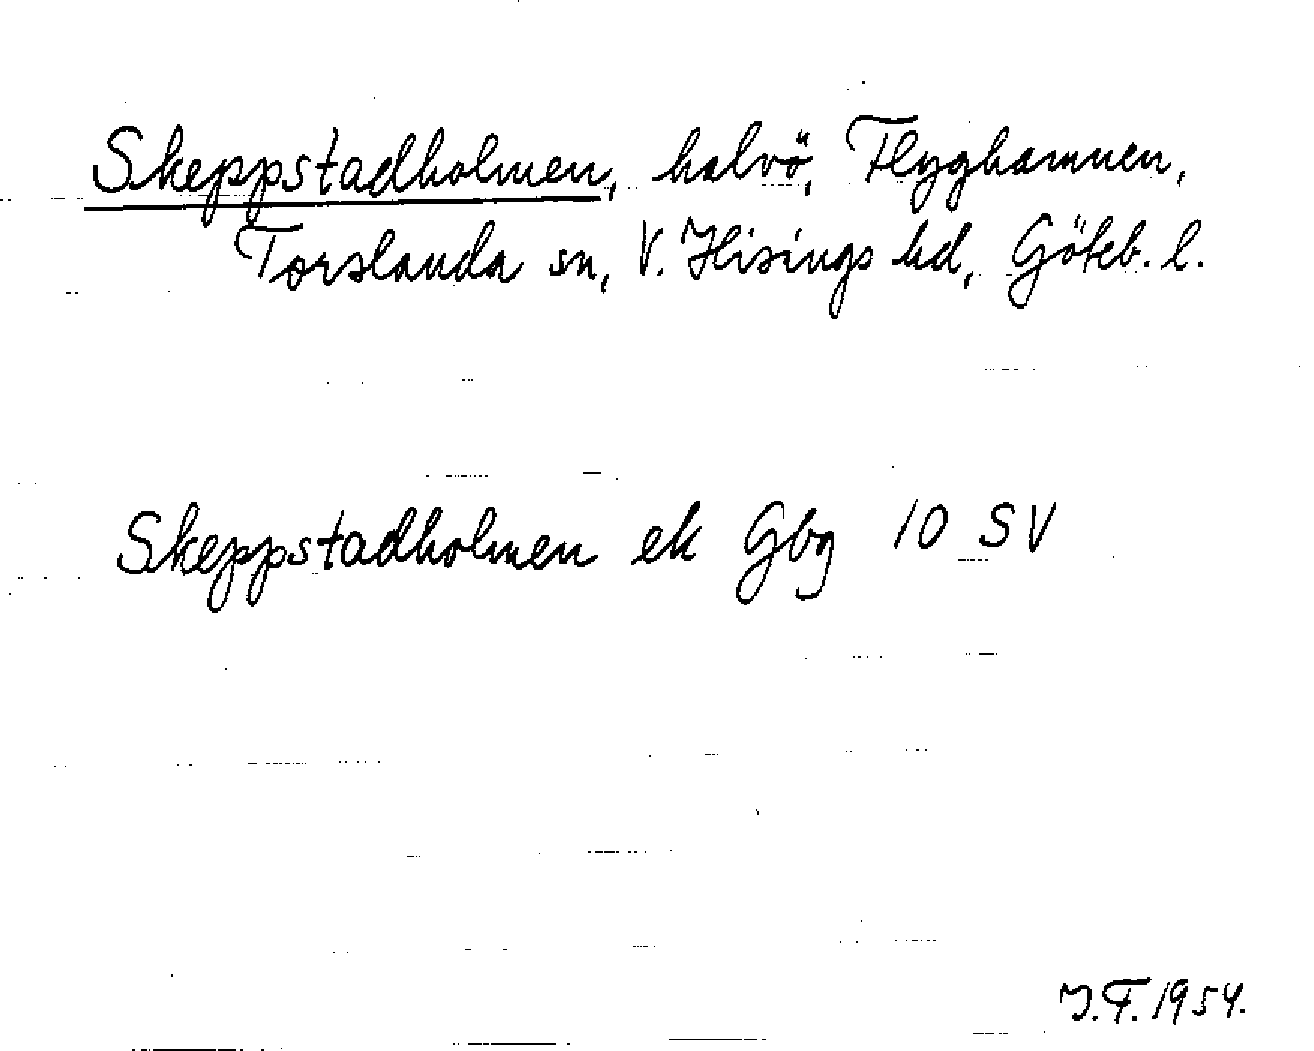 Skeppstadholmen, halvö, Flyghamnen,
Torslanda sn, V. Hisings hd, Göteb. l.
Skeppstadholmen ek Gbg 10 SV
J.F. 1954.